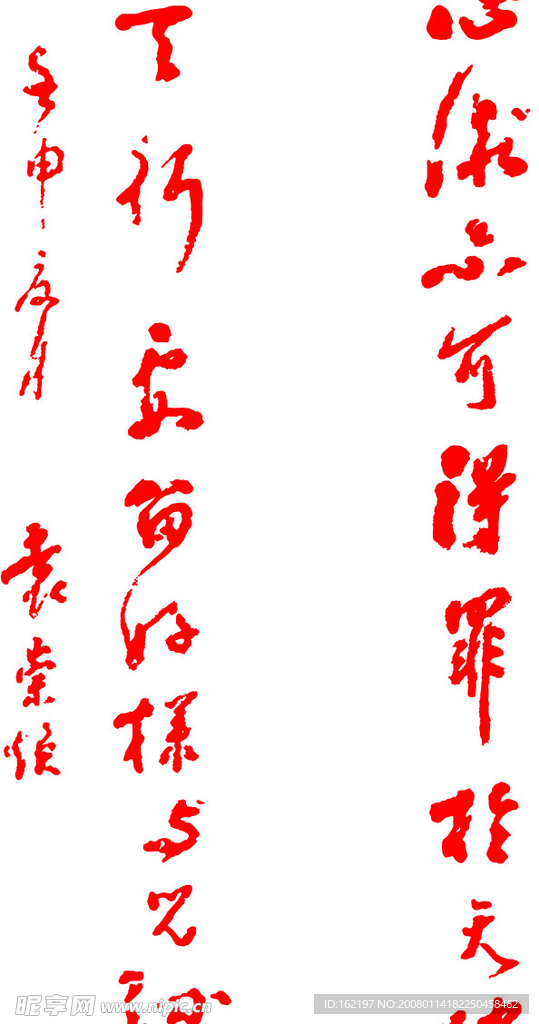 心術不可得罪於天地
言行要留好樣與兒孫
壬申夏月 袁崇煥
昵享网 www.nipic.cn
ID:162197 NO:20080114182250458462